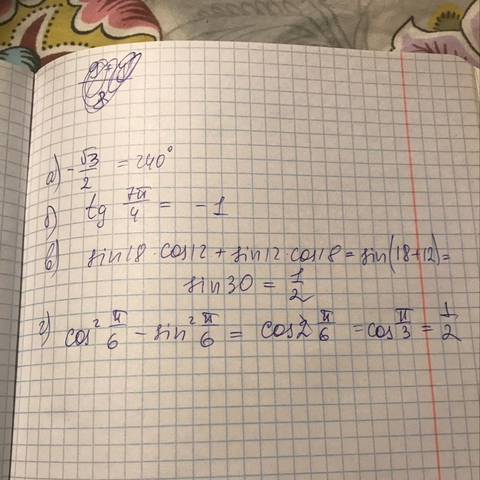 а) -√3/2 = 240°
б) tg 7π/4 = -1
в) sin18 · cos12 + sin12 · cos18 = sin(18+12) =
sin30 = 1/2
г) cos² π/6 - sin² π/6 = cos2 π/6 = cos π/3 = 1/2